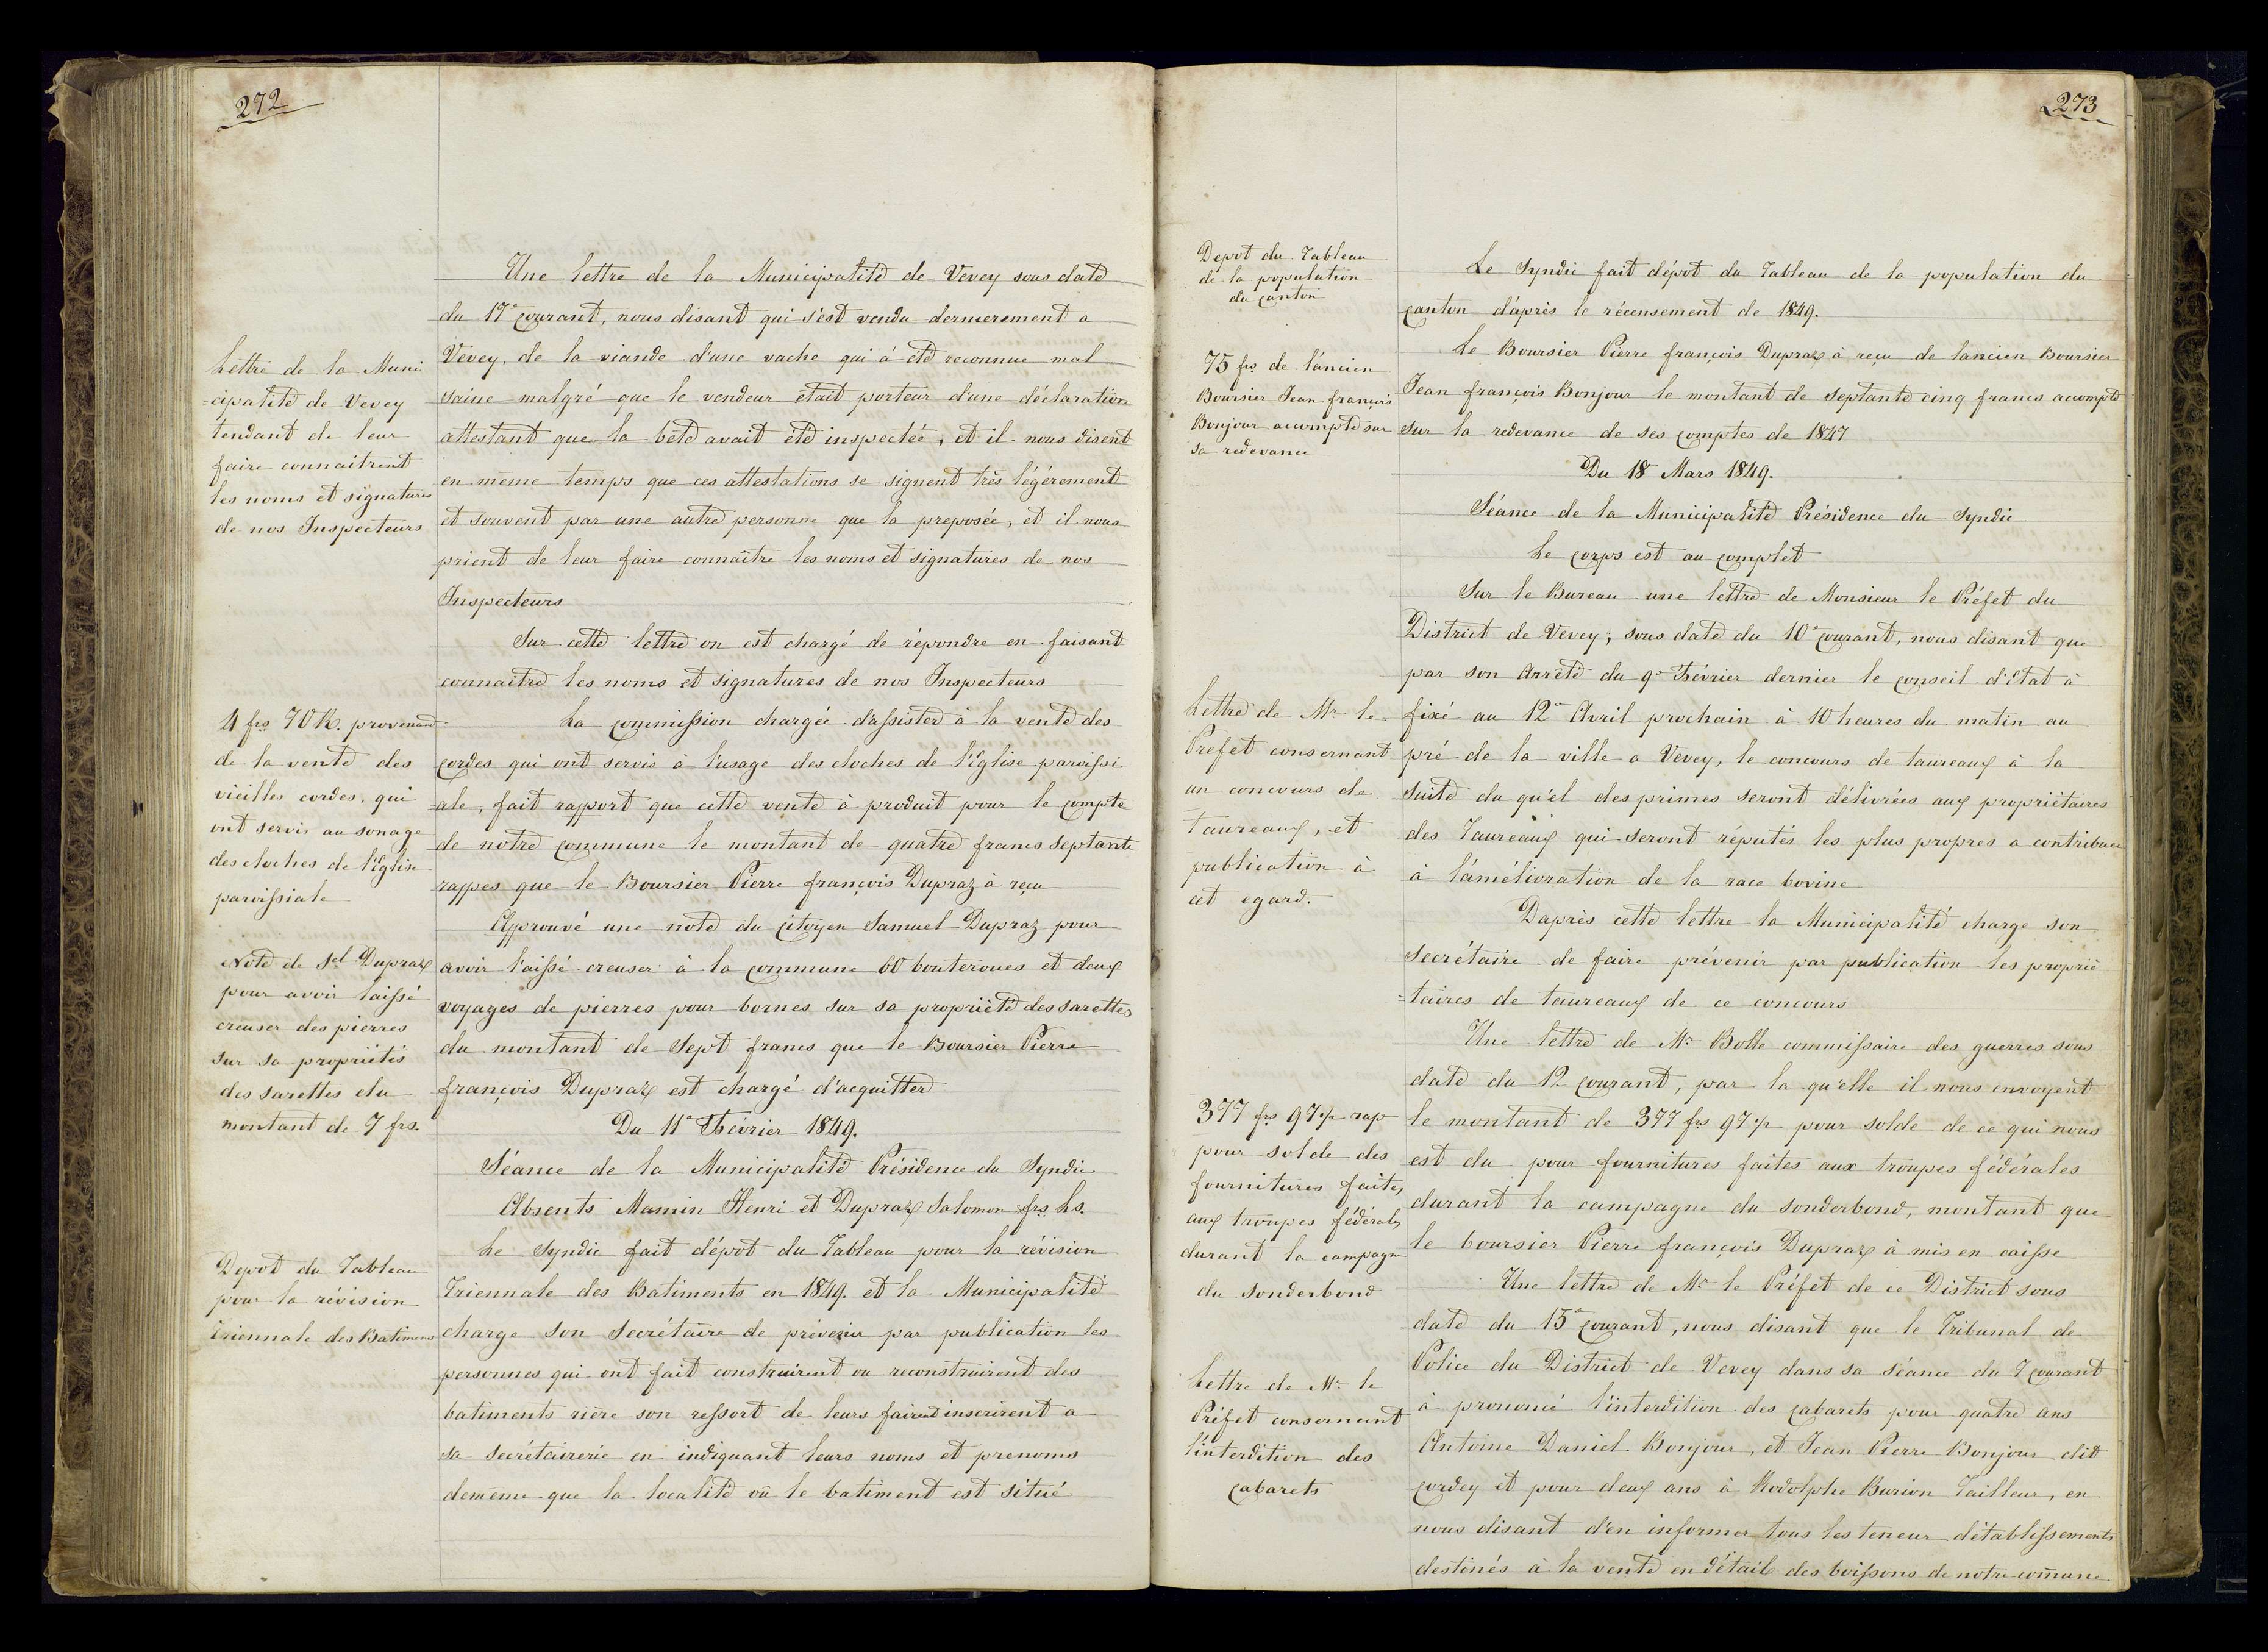 272
Une lettre de la Municipalité de Vevey sous date
du 17e courant, nous disant qui s'est vendu dernierement a
Vevey, de la viande d'une vache qui à été reconnue mal
saine malgré que le vendeur était porteur d'une déclaration
attestant que la bete avait été inspectée, et il nous disent
en même temps que ces attestations se signent très légérement
et souvent par une autre personne que la preposée, et il nous
prient de leur faire connaître les noms et signatures de nos
Inspecteurs
Lettre de la Muni
=cipalité de Vevey
tendant de leur
faire connaitrent
les noms et signatures
de nos Inspecteurs
Sur cette lettre on est chargé de répondre en faisant
connaitre les noms et signatures de nos Inspecteurs
La commission chargée d'assister à la vente des
cordes qui ont servis à l'usage des cloches de l'Eglise paroissi
=ale, fait rapport que cette vente à produit pour le compte
de notre commune le montant de quatre francs septante
rappes que le Boursier Pierre françois Dupraz à reçu
4 frs 70 R. provenand
de la vente des
vieilles cordes, qui
ont servis au sonage
des cloches de l'Eglise
paroissiale
Approuvé une note du citoyen Samuel Dupraz pour
avoir l'aissé creuser à la commune 60 bouteroues et deux
voyages de pierres pour bornes sur sa propriété des sarettes
du montant de Sept francs que le Boursier Pierre
françois Dupraz est chargé d'acquitter
Note de Sel Dupraz
pour avoir laissé
creuser des pierres
sur sa propriétés
des sarettes du
montant de 7 frs.
Du 11e Février 1849.
Séance de la Municipalité Présidence du Syndic
Absents Mamin Henri et Dupraz Salomon frs. hs.
Le Syndic fait dépot du Tableau pour la révision
Triennale des Batiments en 1849. et la Municipalité
charge son secrétaire de prévenir par publication les
personnes qui ont fait construirent ou reconstruirent des
batiments rière son ressort de leurs fairent inscrirent a
sa secrétairerie en indiquant leurs noms et prenoms
demême que la localité où le batiment est situé
Depot du Tableau
pour la révision
Triennale des Batimens
273
Le Syndic fait dépot du Tableau de la population du
canton d'après le récensement de 1849.
Depot du Tableau
de la population
du canton
Le Boursier Pierre françois Dupraz à reçu de lancien Boursier
Jean françois Bonjour le montant de septante cinq francs accompte
sur la redevance de ses comptes de 1847
75 frs de l'ancien
Boursier Jean françois
Bonjour acompte sur
sa redevance
Du 18e Mars 1849.
Séance de la Municipalité Présidence du Syndic
Le corps est au complet
Sur le Bureau une lettre de Monsieur le Préfet du
District de Vevey; sous date du 10e courant, nous disant que
par son Arrêté du 9e Février dernier le conseil d'Etat à
fixé au 12e Avril prochain à 10 heures du matin au
pré de la ville a Vevey, le concours de taureaux à la
suite du qu'el des primes seront délivrées aux propriétaires
des Taureaux qui seront réputés les plus propres a contribuer
à l'amélioration de la race bovine
Lettre de Mr le
Prefet consernant
un concours de
Taureaux, et
publication à
cet egard.
Daprès cette lettre la Municipalité charge son
secrétaire de faire prévenir par publication les proprié
=taires de taureaux de ce concours
Une lettre de Mr Bolle commissaire des guerres sous
date du 12 courant, par la qu'elle il nous envoyent
le montant de 377 frs 97½ pour solde de ce qui nous
est du pour fournitures faites aux troupes fédérales
durant la campagne du sonderbond, montant que
le boursier Pierre françois Dupraz à mis en caisse
377 frs 97½ rap
pour solde des
fournitures faites
aux troupes fédérales
durant la campagne
du sonderbond
Une lettre de Mr le Préfet de ce District sous
date du 15e courant, nous disant que le Tribunal de
Police du District de Vevey dans sa séance du 7 courant
à prononcé l'interdition des cabarets pour quatre ans
Antoine Daniel Bonjour, et Jean Pierre Bonjour dit
cordey et pour deux ans à Rodolphe Burion Tailleur, en
nous disant d'en informer tous les teneur d'établissements
destinés à la vente en détails des boissons de notre commune
Lettre de Mr le
Préfet consernant
l'interdition des
cabarets